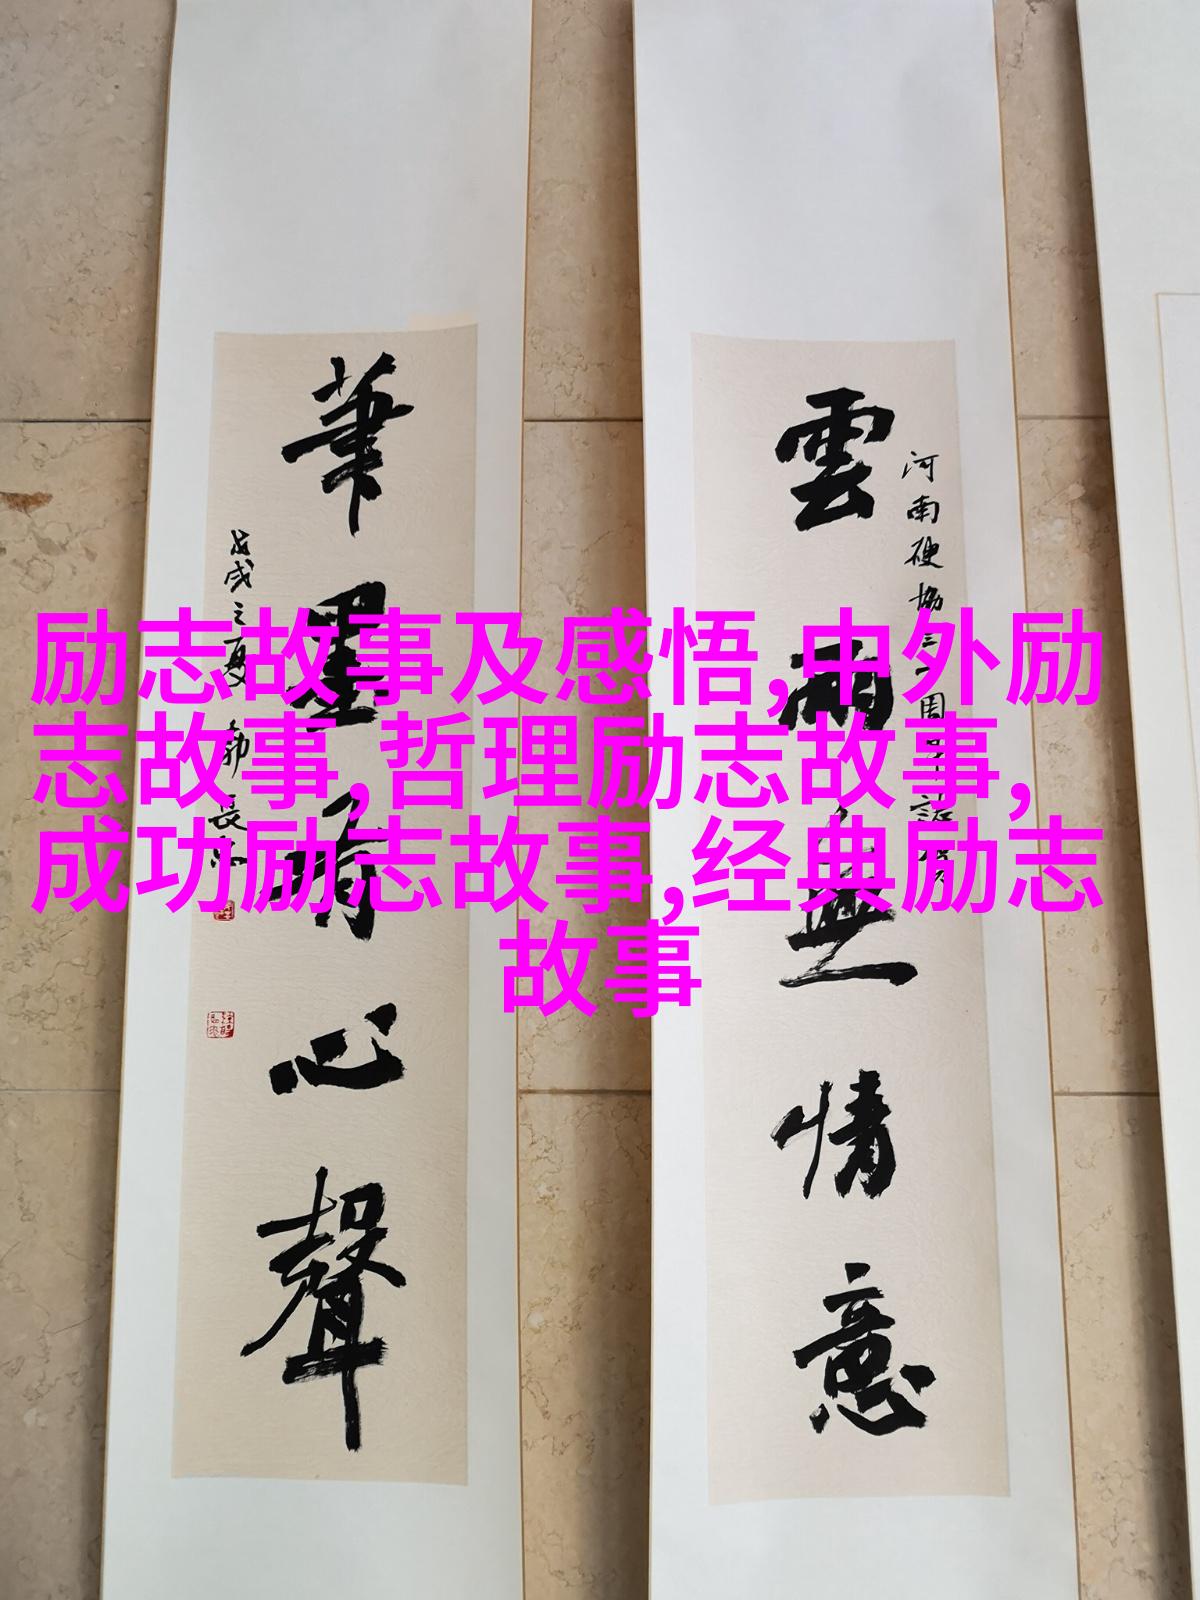 励志故事及感悟,中外励
志故事,哲理励志故事,
成功励志故事,经典励志
故事
雲雨無情意
河南硬協三
筆墨有心聲
戊戌之夏